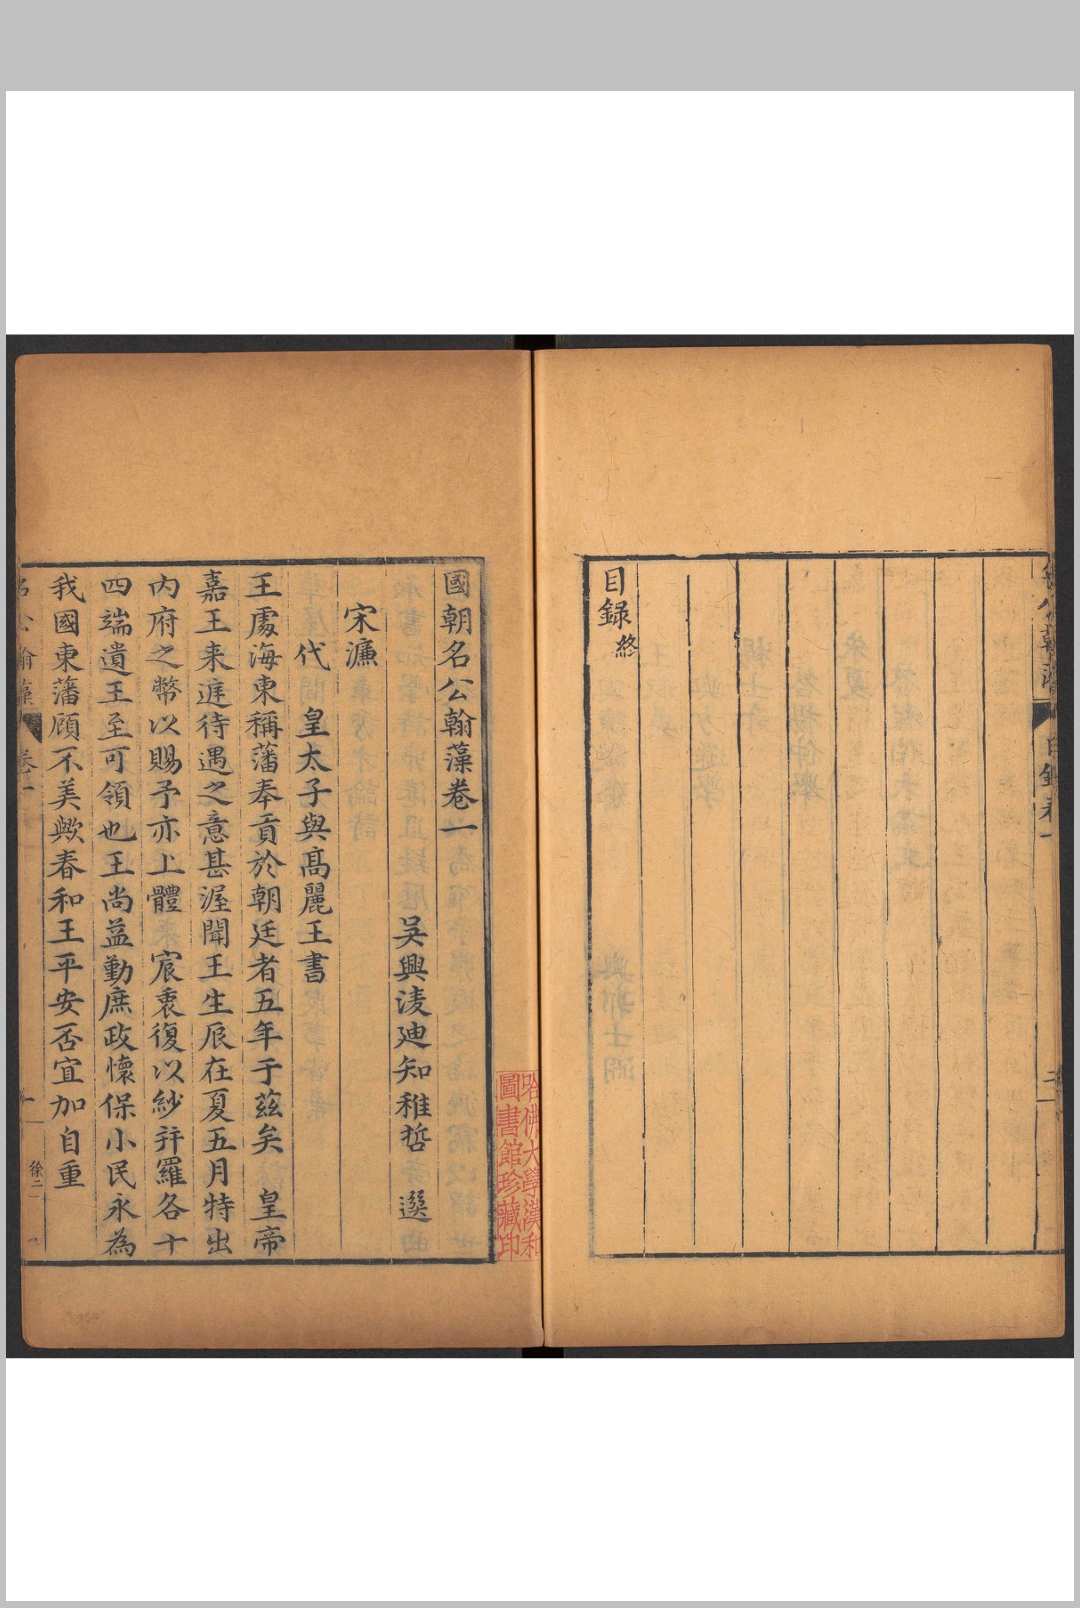 目錄終
國朝名公翰藻卷一
吳興淩迪知稚哲 選
宋濂
代 皇太子與高麗王書
王處海東稱藩奉貢於朝廷者五年于茲矣 皇帝
嘉王来遅待遇之意甚渥聞王生辰在夏五月特出
內府之幣以賜予亦上體宸衷復以紗幷羅各十
四端遺王至可領也王尚益勤庶政懷保小民永為
我國東藩顧不美歟春和王平安否宜加自重
卷一
徐二
哈佛大學漢和
圖書館珍藏印